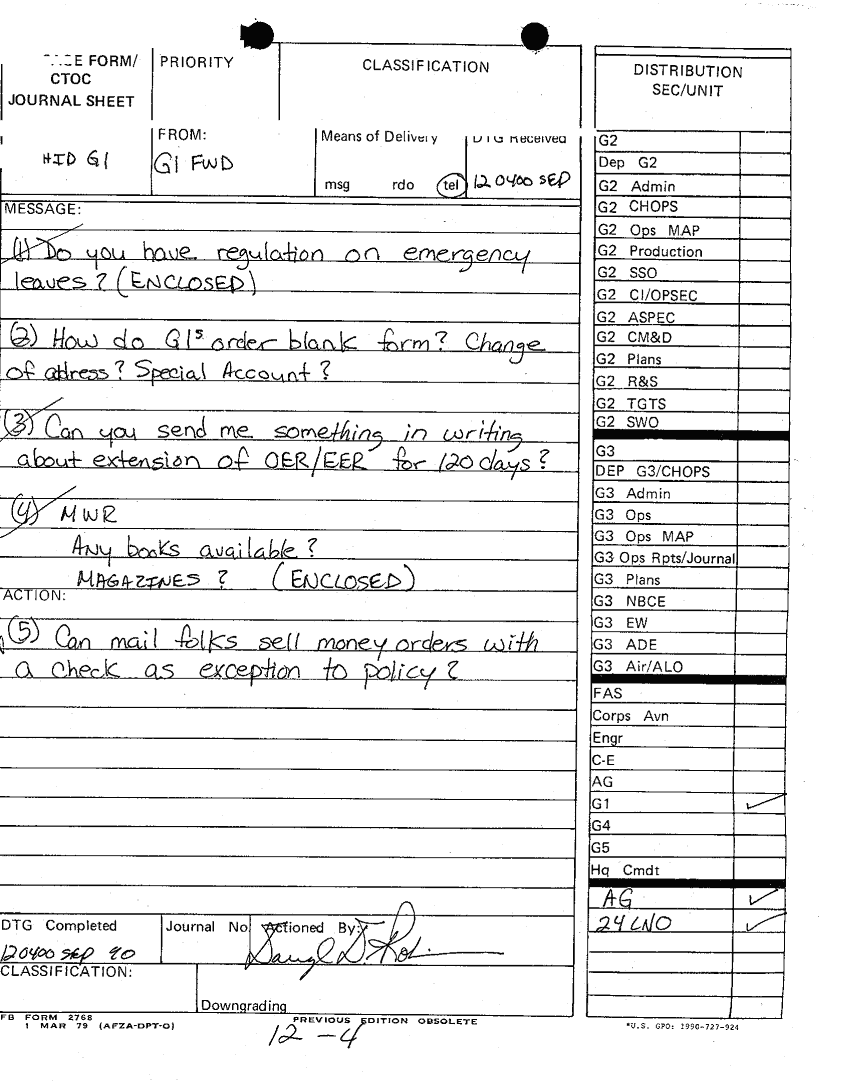 E FORM/
CTOC
JOURNAL SHEET
PRIORITY
CLASSIFICATION
DISTRIBUTION
SEC/UNIT
HID G1
FROM:
G1 FWD
Means of Delivery
msg rdo tel
DTG Received
120400 SEP
MESSAGE:
(1) Do you have regulation on emergency
leaves? (ENCLOSED)
(2) How do G1s order blank form? Change
of address? Special Account?
(3) Can you send me something in writing
about extension of OER/EER for 120 days?
(4) MWR
Any books available?
MAGAZINES? (ENCLOSED)
ACTION:
(5) Can mail folks sell money orders with
a check as exception to policy?
G2
Dep G2
G2 Admin
G2 CHOPS
G2 Ops MAP
G2 Production
G2 SSO
G2 CI/OPSEC
G2 ASPEC
G2 CM&D
G2 Plans
G2 R&S
G2 TGTS
G2 SWO
G3
DEP G3/CHOPS
G3 Admin
G3 Ops
G3 Ops MAP
G3 Ops Rpts/Journal
G3 Plans
G3 NBCE
G3 EW
G3 ADE
G3 Air/ALO
FAS
Corps Avn
Engr
C-E
AG
G1
G4
G5
Hq Cmdt
AG
24 LNO
DTG Completed
120400 SEP 90
Journal No
Actioned By:
CLASSIFICATION:
Downgrading
FB FORM 2768
1 MAR 79 (AFZA-DPT-O)
PREVIOUS EDITION OBSOLETE
12-4
*U.S. GPO: 1990-727-924